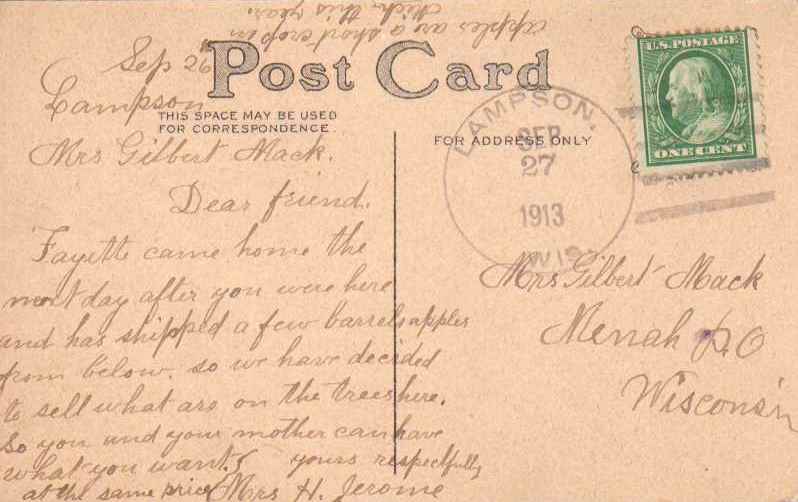 apples are a short crop in
Mich. this year.
Sep 26
Lampson
Post Card
THIS SPACE MAY BE USED
FOR CORRESPONDENCE
FOR ADDRESS ONLY
U.S. POSTAGE
ONE CENT
LAMPSON,
SEP
27
1913
WIS.
Mrs Gilbert Mack.
Dear friend.
Fayette came home the
next day after you were here
and has shipped a few barrels apples
from below. so we have decided
to sell what are on the trees here.
So you and your mother can have
what you want
yours respectfully
at the same price
Mrs H. Jerome
Mrs Gilbert Mack
Menah P.O
Wisconsin